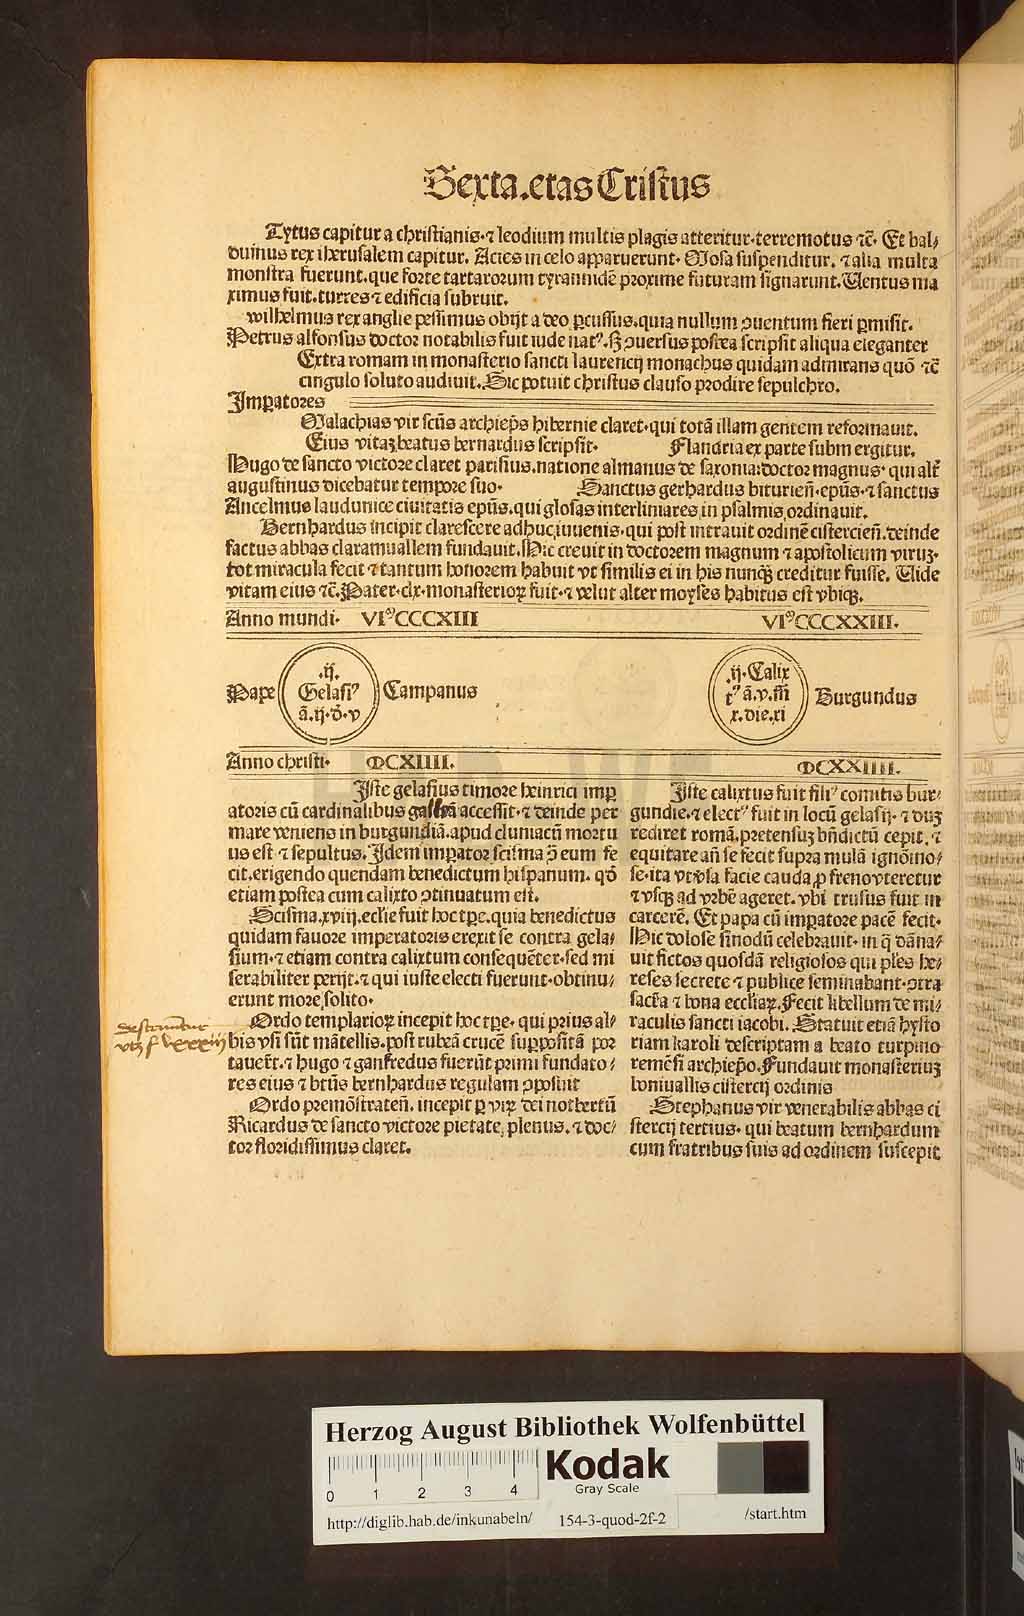 Sexta.etas Cristus
Tytus capitur a christianis·⁊ leodium multis plagis atteritur·terremotus ⁊c̄· Et bal⸗
duinus rex iherusalem capitur. Acies in celo apparuerunt· Mosa suspenditur. ⁊ alia multa
monstra fuerunt.que forte tartarorum tyrannidē proxime futuram signarunt.Uentus ma
ximus fuit.turres ⁊ edificia subruit.
wilhelmus rex anglie pessimus obijt a deo ꝑcussus.quia nullum ꝯuentum fieri ꝑmisit.
Petrus alfonsus doctor notabilis fuit iude natꝰ.sꝫ ꝯuersus postea scripsit aliqua eleganter
Extra romam in monasterio sancti laurencij monachus quidam admirans quō ⁊c̄
cingulo soluto audiuit.Sic potuit christus clauso prodire sepulchro.
Imꝑatores
Malachias vir scūs archiep̄s hibernie claret·qui totā illam gentem reformauit.
Eius vitaꝫ beatus bernardus scripsit· Flandria ex parte subm ergitur.
Hugo de sancto victore claret parisius.natione almanus de saxonia:doctor magnus· qui alt̄
augustinus dicebatur tempore suo· Sanctus gerhardus biturien̄·epūs·⁊ sanctus
Ancelmus laudunice ciuitatis epūs.qui glosas interliniares in psalmis ordinauit.
Bernhardus incipit clarescere adhuc iuuenis·qui post intrauit ordinē cistercien̄.deinde
factus abbas claramuallem fundauit.Hic creuit in doctorem magnum ⁊ apostolicum viruꝫ·
tot miracula fecit ⁊ tantum honorem habuit vt similis ei in his nunqꝫ creditur fuisse. Uide
vitam eius ⁊c̄.Pater·clx·monasterioꝝ fuit·⁊ velut alter moyses habitus est vbiqꝫ.
Anno mundi· VIᵐCCCXIII VIᵐCCCXXIII.
Pape
.ij.
Gelasiꝰ
ā.ij·d̄·v
Campanus
.ij·Calix
tꝰ ā.v.m̄
x.die.xi
Burgundus
Anno christi· MCXIIII. MCXXIIII.
Iste gelasius timore heinrici imꝑ
atoris cū cardinalibus galliā accessit·⁊ deinde per
mare veniens in burgundiā.apud cluniacū mortu
us est ⁊ sepultus. Idem imꝑator scisma ꝯ̄ eum fe
cit.erigendo quendam benedictum hispanum. qd̄
etiam postea cum calixto ꝯtinuatum est.
Scisma.xviij.eccl̄ie fuit hoc tꝑe.quia benedictus
quidam fauore imperatoris erexit se contra gela⸗
sium·⁊ etiam contra calixtum consequēter·sed mi
serabiliter perijt.⁊ qui iuste electi fuerunt·obtinu⸗
erunt more solito·
Ordo templarioꝝ incepit hoc tꝑe· qui prius al⸗
bis vsi sūt mātellis.post rubeā crucē supposita por
tauer̄t.⁊ hugo ⁊ ganfredus fuerūt primi fundato⸗
res eius ⁊ btūs bernhardus regulam ꝯposuit
Ordo premōstraten̄. incepit ꝑ viꝝ dei notbertū
Ricardus de sancto victore pietate plenus.⁊ doc⸗
tor floridissimus claret.
Iste calixtus fuit filiꝰ comitis bur⸗
gundie.⁊ electꝰ fuit in locū gelasij· ⁊ dūꝫ
rediret romā.pretensuꝫ bn̄dictū cepit.⁊
equitare an̄ se fecit supra mulā ignōmio⸗
se·ita vt vsa facie cauda ꝓ freno vteretur
⁊ vsqꝫ ad vrbē ageret.vbi trusus fuit in
carcerē. Et papa cū imꝑatore pacē fecit·
Hic dolose sinodū celebrauit·in q̄ dāna⸗
uit fictos quosdā religiosos qui pl̄es he⸗
reses secrete ⁊ publice seminabant·ꝯtra
sacr̄a ⁊ bona eccl̄iaꝝ.Fecit libellum de mi⸗
raculis sancti iacobi. Statuit etiā hysto
riam karoli descriptam a beato turpino
remēsi archiep̄o.Fundauit monasteriuꝫ
boniuallis cistercij ordinis
Stephanus vir venerabilis abbas ci
stercij tertius· qui beatum bernhardum
cum fratribus suis ad ordinem suscepit
Herzog August Bibliothek Wolfenbüttel
0 1 2 3 4
Kodak
Gray Scale
http://diglib.hab.de/inkunabeln/ 154-3-quod-2f-2 /start.htm